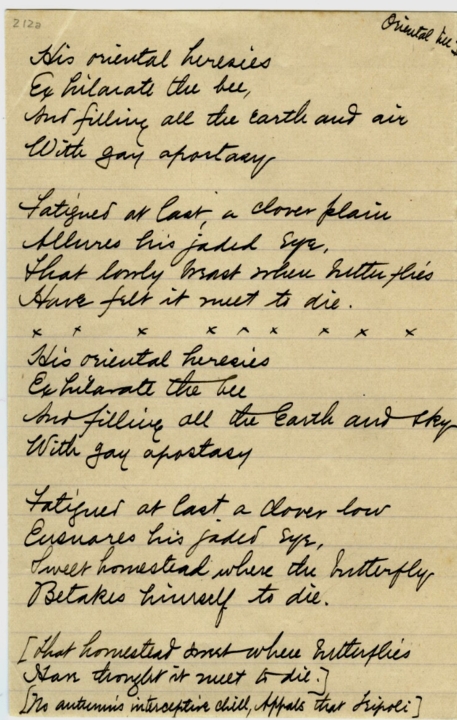 212a
Oriental
His oriental heresies
Exhilarate the bee,
And filling all the Earth and air
With gay apostasy
Fatigued at last, a clover plain
Allures his jaded Eye,
That lowly breast where butterflies
Have felt it meet to die.
x x x x x x x x x
His oriental heresies
Exhilarate the bee
And filling all the Earth and sky
With gay apostasy
Fatigued at last a clover low
Ensnares his jaded Eye,
Sweet homestead where the butterfly
Betakes himself to die.
[That homestead sweet where butterflies
Have thought it meet to die.]
[No autumn's interceptive chill, Appals that]